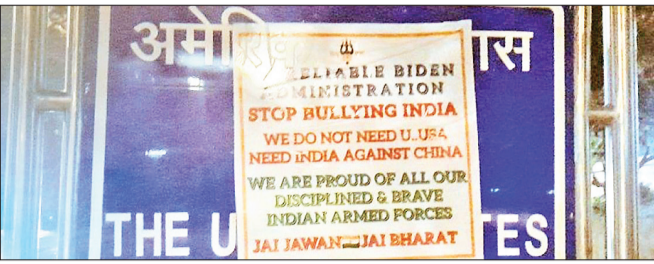 अमे
ास
RELIABLE BIDEN
ADMINISTRATION
STOP BULLYING INDIA
WE DO NOT NEED U..USA
NEED INDIA AGAINST CHINA
WE ARE PROUD OF ALL OUR
DISCIPLINED & BRAVE
INDIAN ARMED FORCES
JAI JAWAN JAI BHARAT
THE U TES